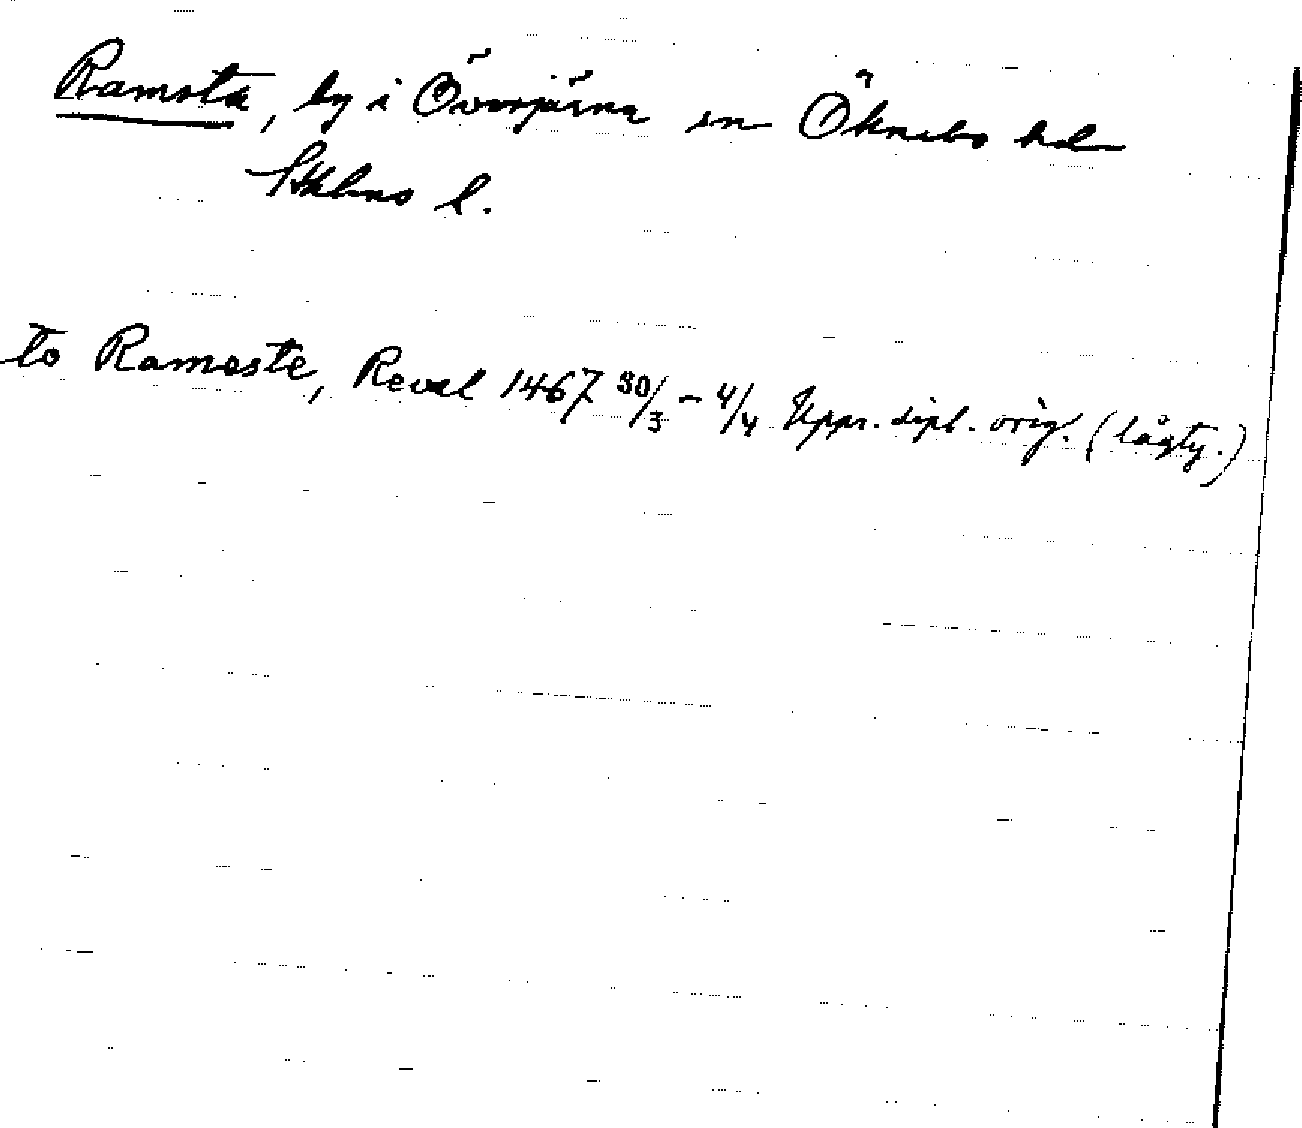 Ramsta, by i Överjärna sn Öknebo hd
Sthlms l.
to Ramaste, Reval 1467 30/3 - 4/4 Uppr. dipl. orig. (lågty.)